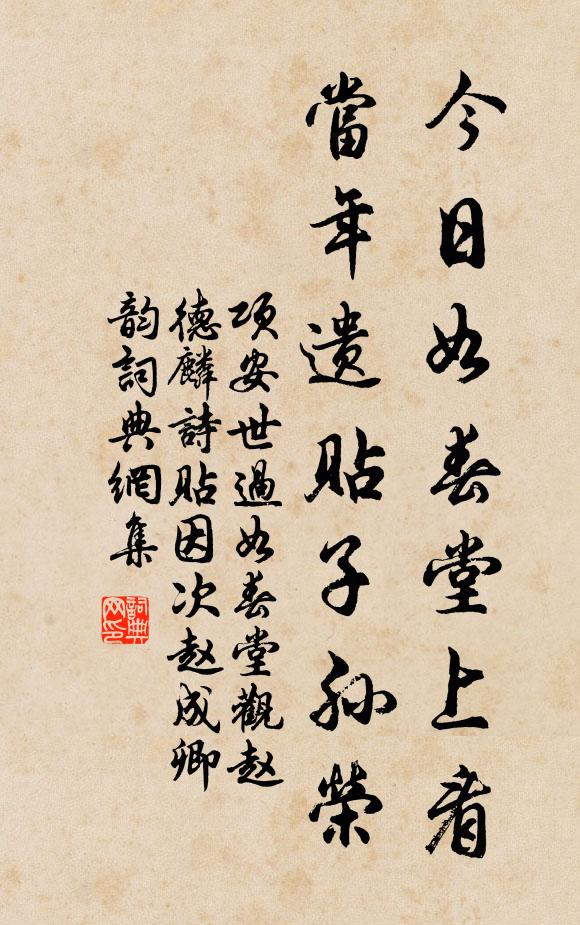 今日如春堂上看
當年遺貼子孫榮
項安世過如春堂觀赵
德麟詩貼因次赵成卿
韵詞典網集
詞典网印